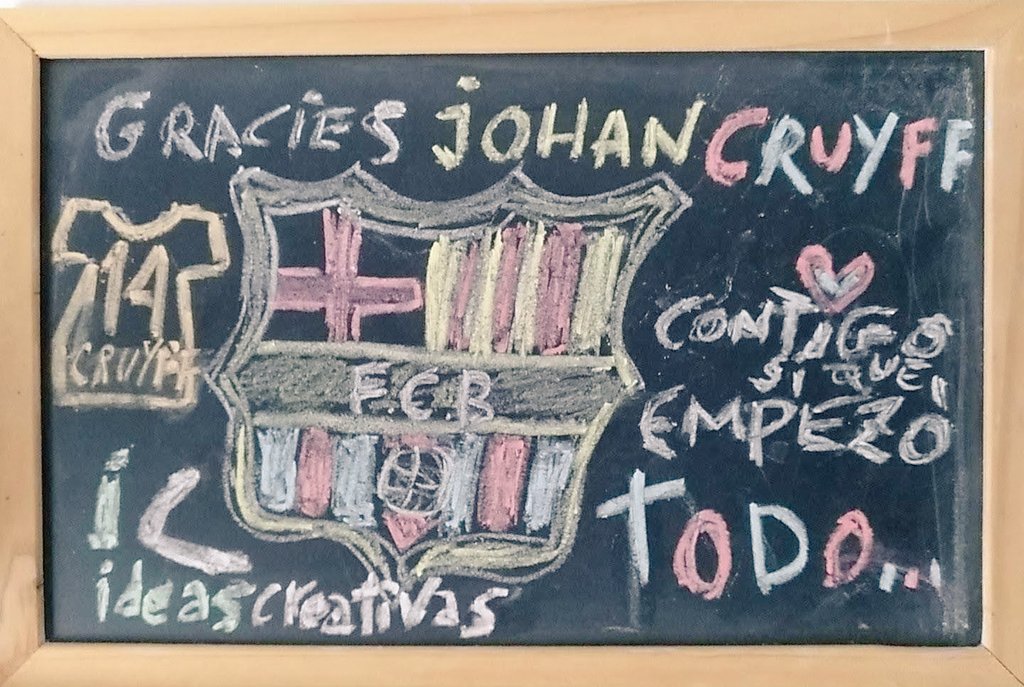 GRACIES JOHAN CRUYFF
14
CRUYFF
F.C.B
CONTIGO
SI QUE
EMPEZO
TODO...
ic
ideascreativas